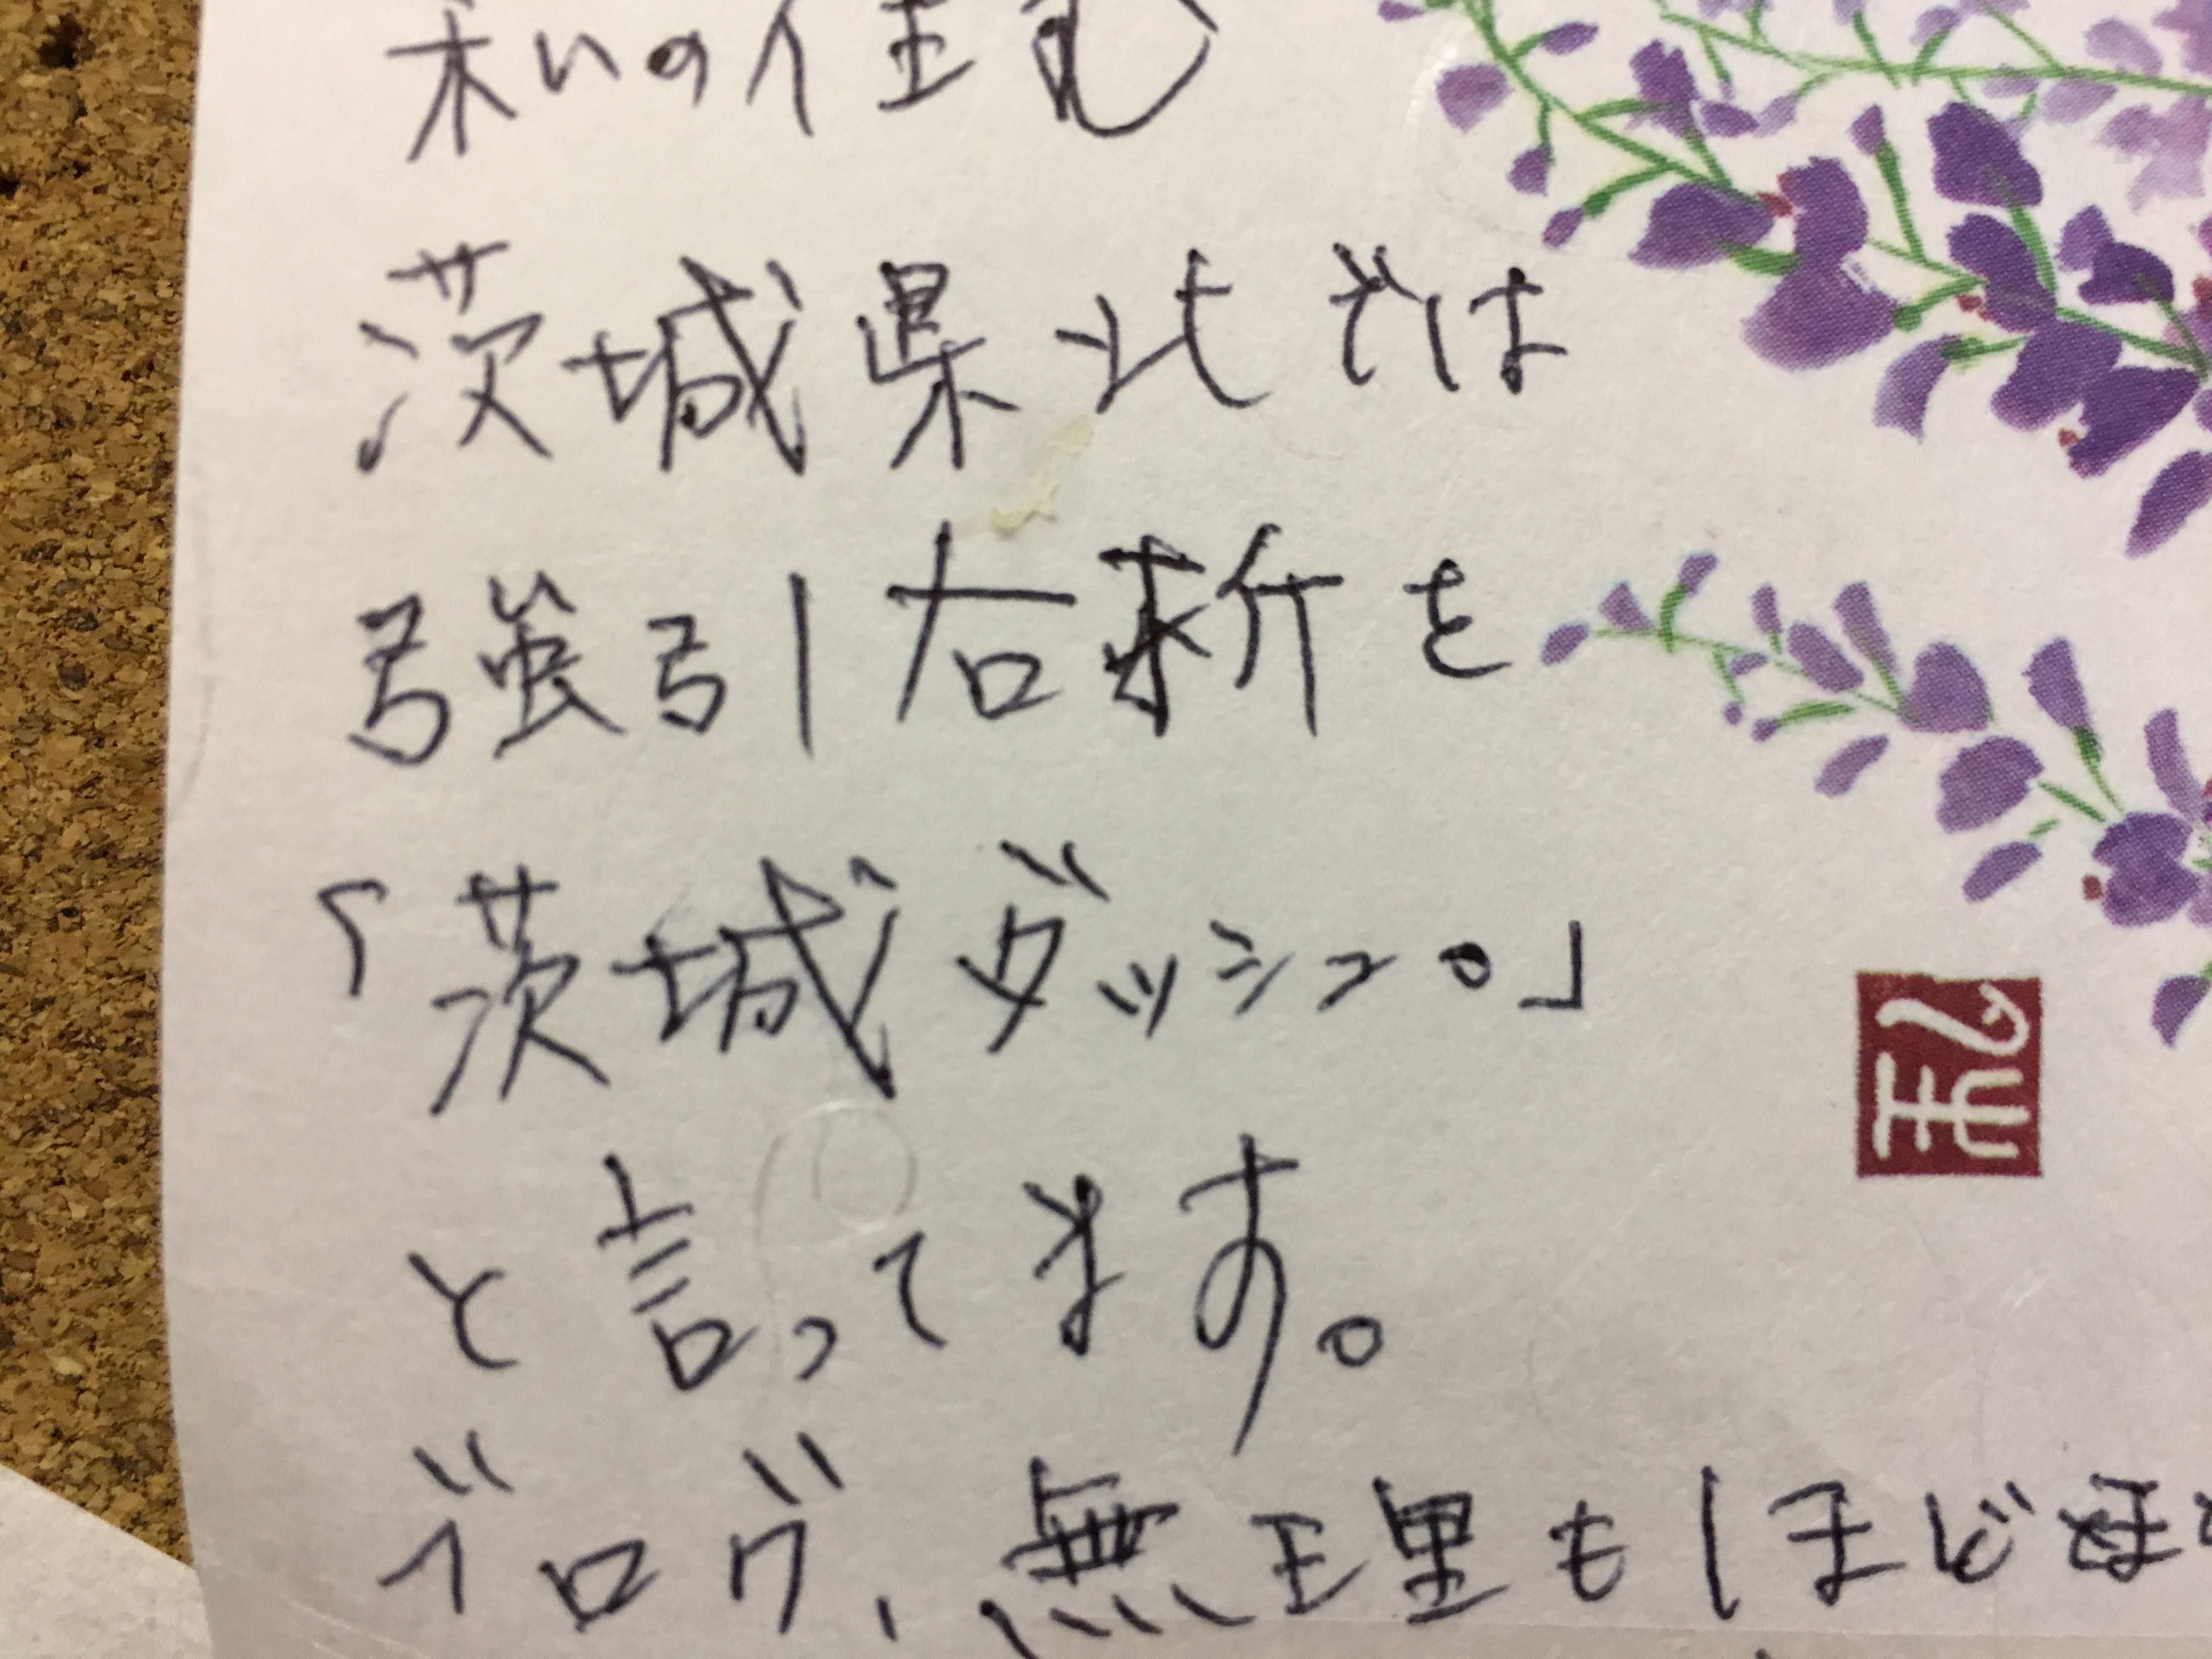 私の住む
茨城県北では
強引右折を
「茨城ダッシュ。」
と言ってます。
ブログ、無理もほどほ